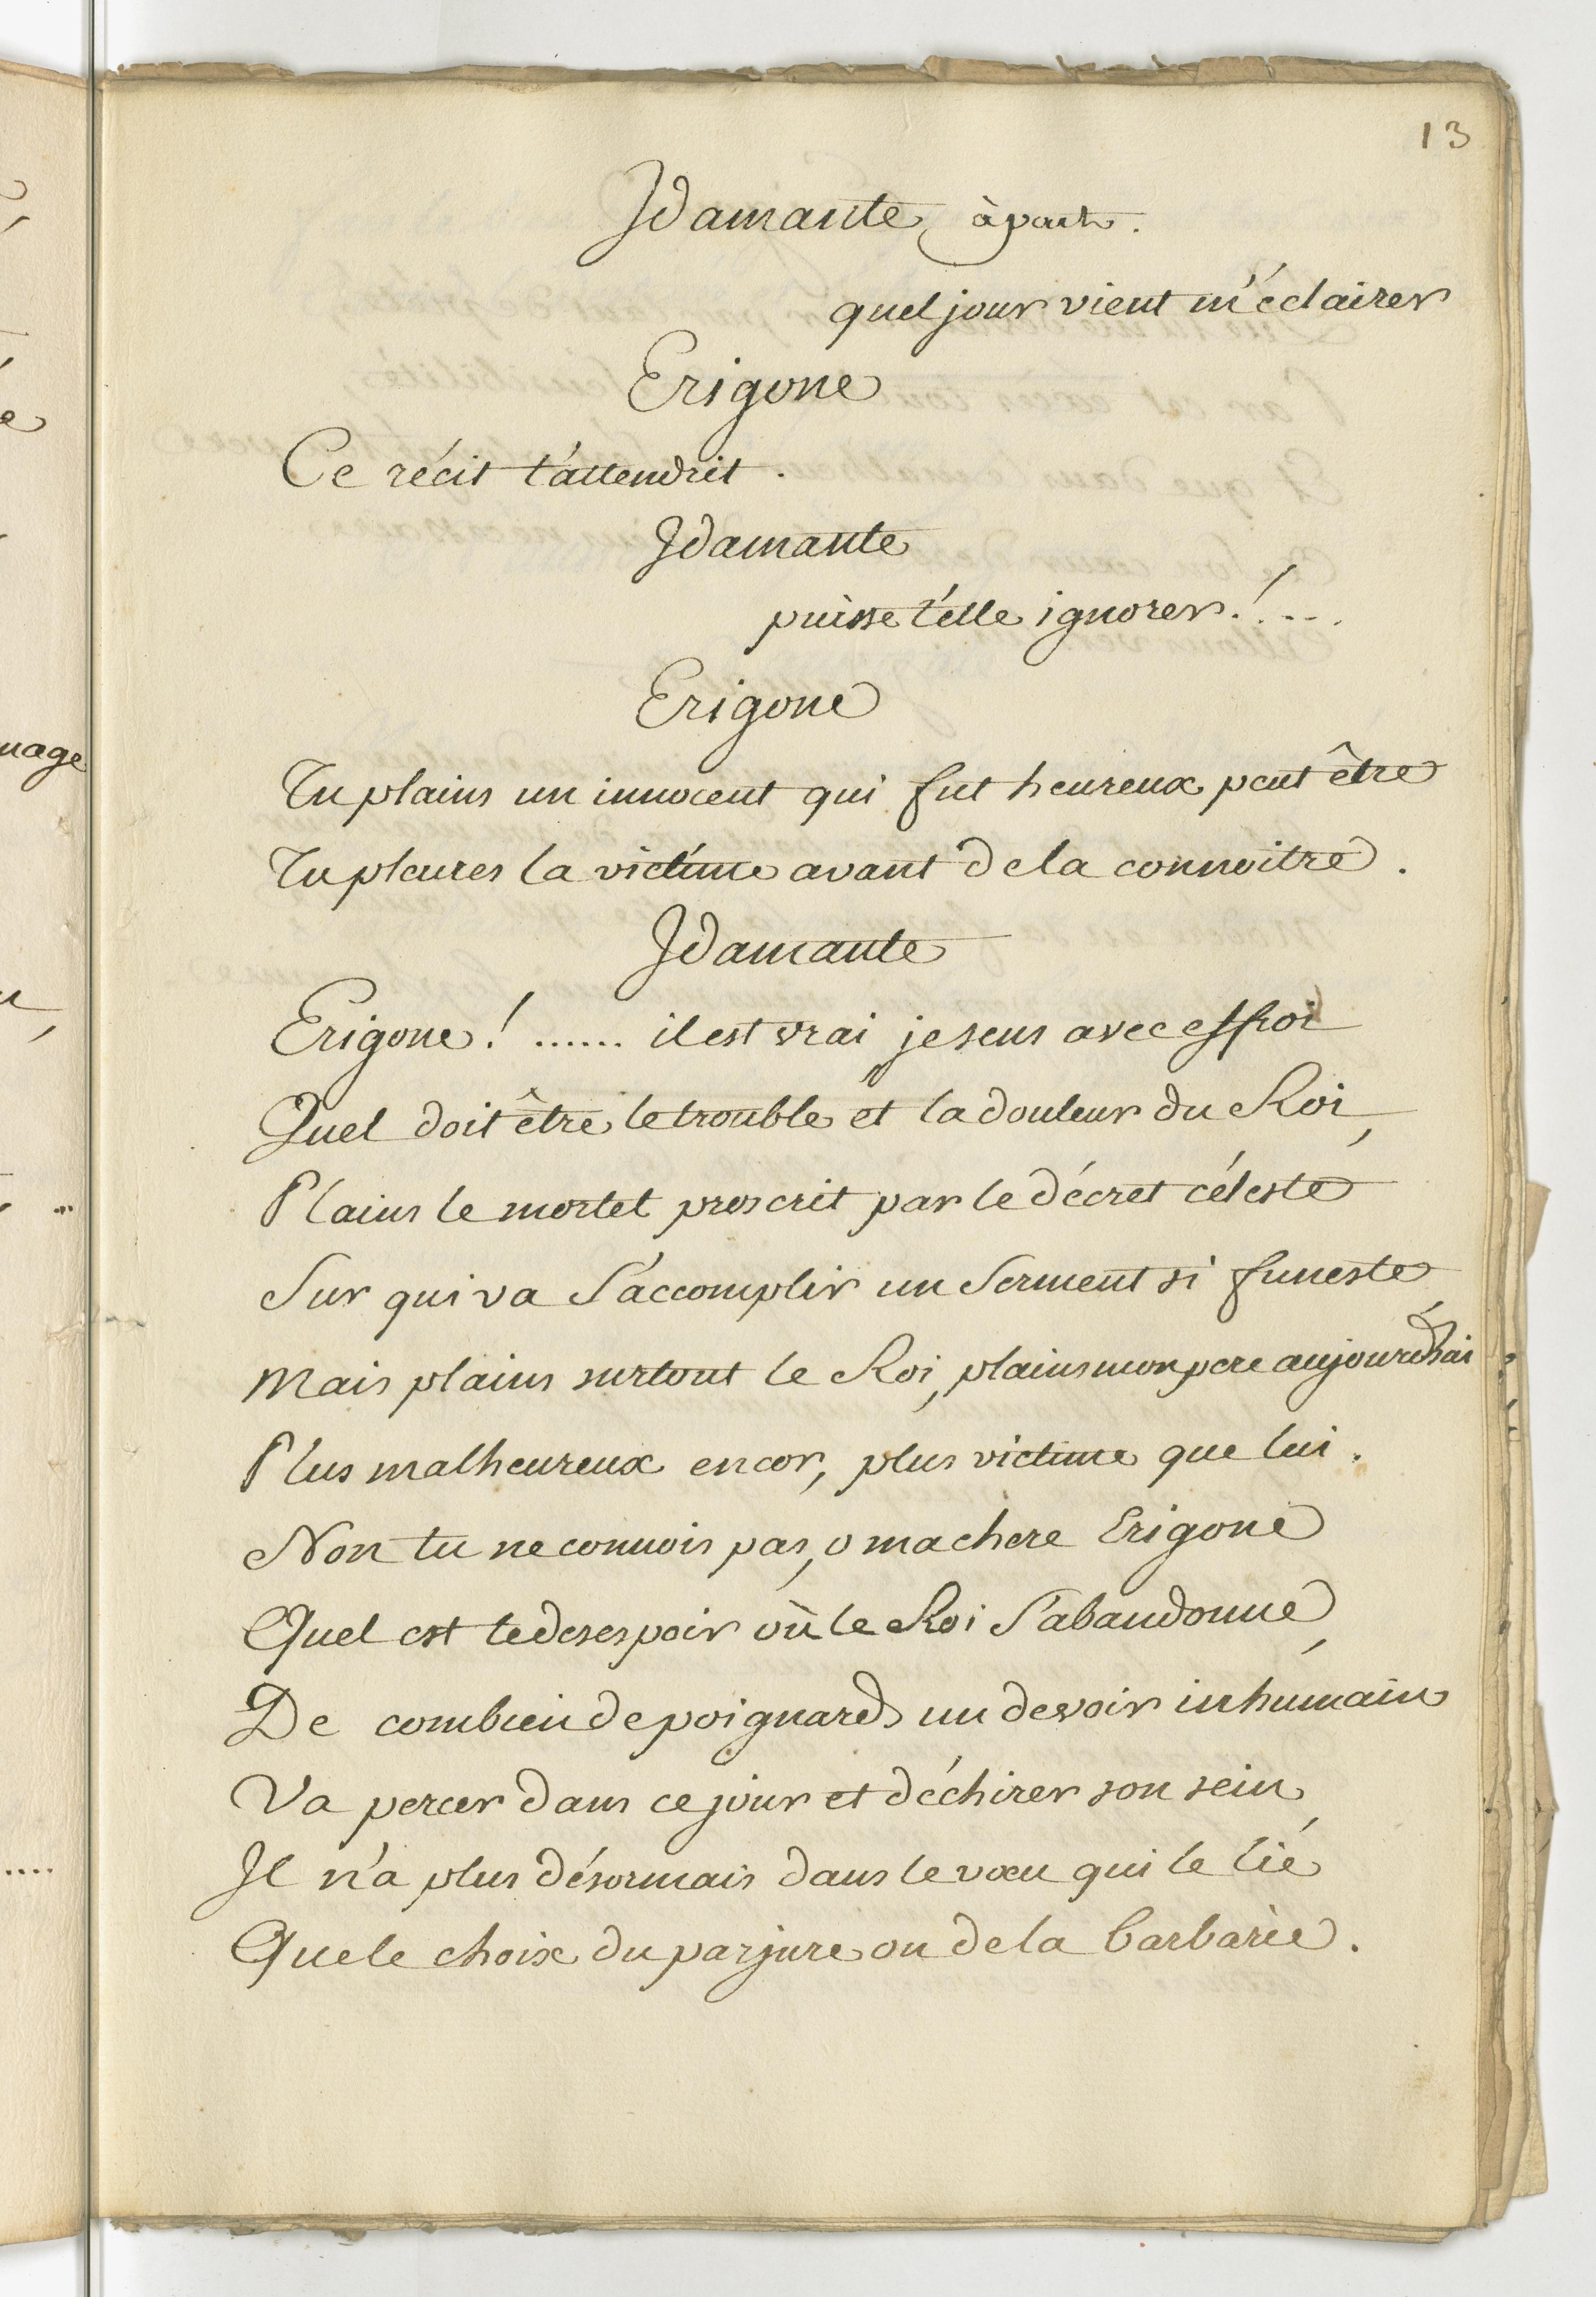 13
Idamante à part.
quel jour vient m'éclairer
Erigone
Ce récit t'attendrit.
Idamante
puisse t'elle ignorer!....
Erigone
Tu plains un innocent qui fut heureux peut être
Tu pleures la victime avant de la connoitre.
Idamante
Erigone! ...... il est vrai je sens avec effroi
Quel doit être le trouble et la douleur du Roi,
Plains le mortel proscrit par le décret céleste
Sur qui va s'accomplir un serment si funeste,
Mais plains surtout le Roi, plains mon pere
Plus malheureux encor, plus victime que lui.
Non tu ne connois pas, o ma chere Erigone
Quel est le desespoir où le Roi s'abandonne,
De combien de poignards un devoir inhumain
Va percer dans ce jour et déchirer son sein,
Il n'a plus désormais dans le vœu qui le lie
Que le choix du parjure ou de la barbarie.